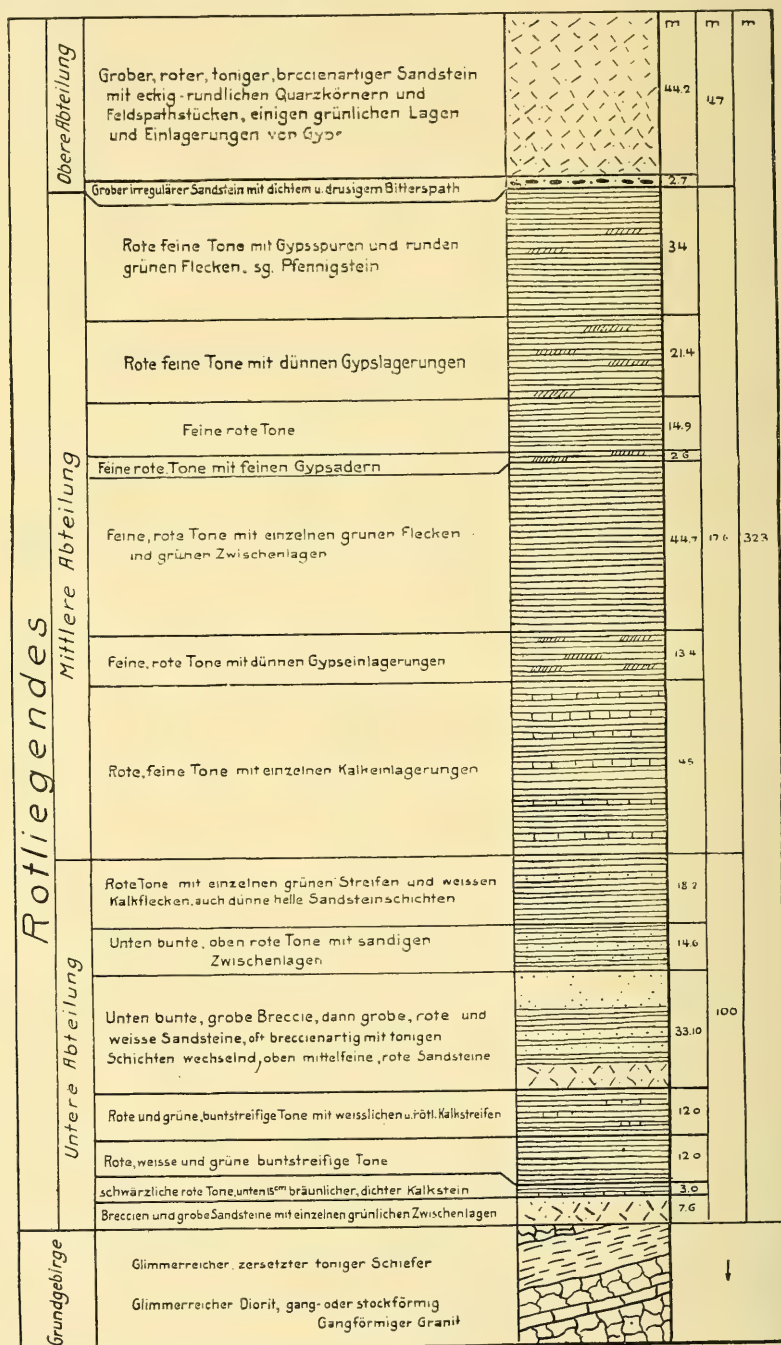 m m m
Rotliegendes
Obere Abteilung
Grober, roter, toniger, breccienartiger Sandstein
mit eckig-rundlichen Quarzkörnern und
Feldspathstücken, einigen grünlichen Lagen
und Einlagerungen von
44.2
47
Grober irregulärer Sandstein mit dichtem u. drusigem Bitterspath
2.7
Mittlere Abteilung
Rote feine Tone mit Gypsspuren und runden
grünen Flecken, sg. Pfennigstein
34
Rote feine Tone mit dünnen Gypslagerungen
21.4
Feine rote Tone
14.9
Feine rote Tone mit feinen Gypsadern
2.6
Feine, rote Tone mit einzelnen grunen Flecken
und grünen Zwischenlagen
44.7
176
323
Feine, rote Tone mit dünnen Gypseinlagerungen
13.4
Rote, feine Tone mit einzelnen Kalkeinlagerungen
45
Untere Abteilung
Rote Tone mit einzelnen grünen Streifen und weissen
Kalkflecken, auch dünne helle Sandsteinschichten
18.2
Unten bunte, oben rote Tone mit sandigen
Zwischenlagen
14.6
Unten bunte, grobe Breccie, dann grobe, rote und
weisse Sandsteine, oft breccienartig mit tonigen
Schichten wechselnd, oben mittelfeine, rote Sandsteine
33.10
100
Rote und grüne, buntstreifige Tone mit weisslichen u. rötl. Kalkstreifen
12.0
Rote, weisse und grüne buntstreifige Tone
12.0
schwärzliche rote Tone, unten 15cm bräunlicher, dichter Kalkstein
3.0
Breccien und grobe Sandsteine mit einzelnen grünlichen Zwischenlagen
7.6
Grundgebirge
Glimmerreicher, zersetzter toniger Schiefer
Glimmerreicher Diorit, gang- oder stockförmig
Gangförmiger Granit